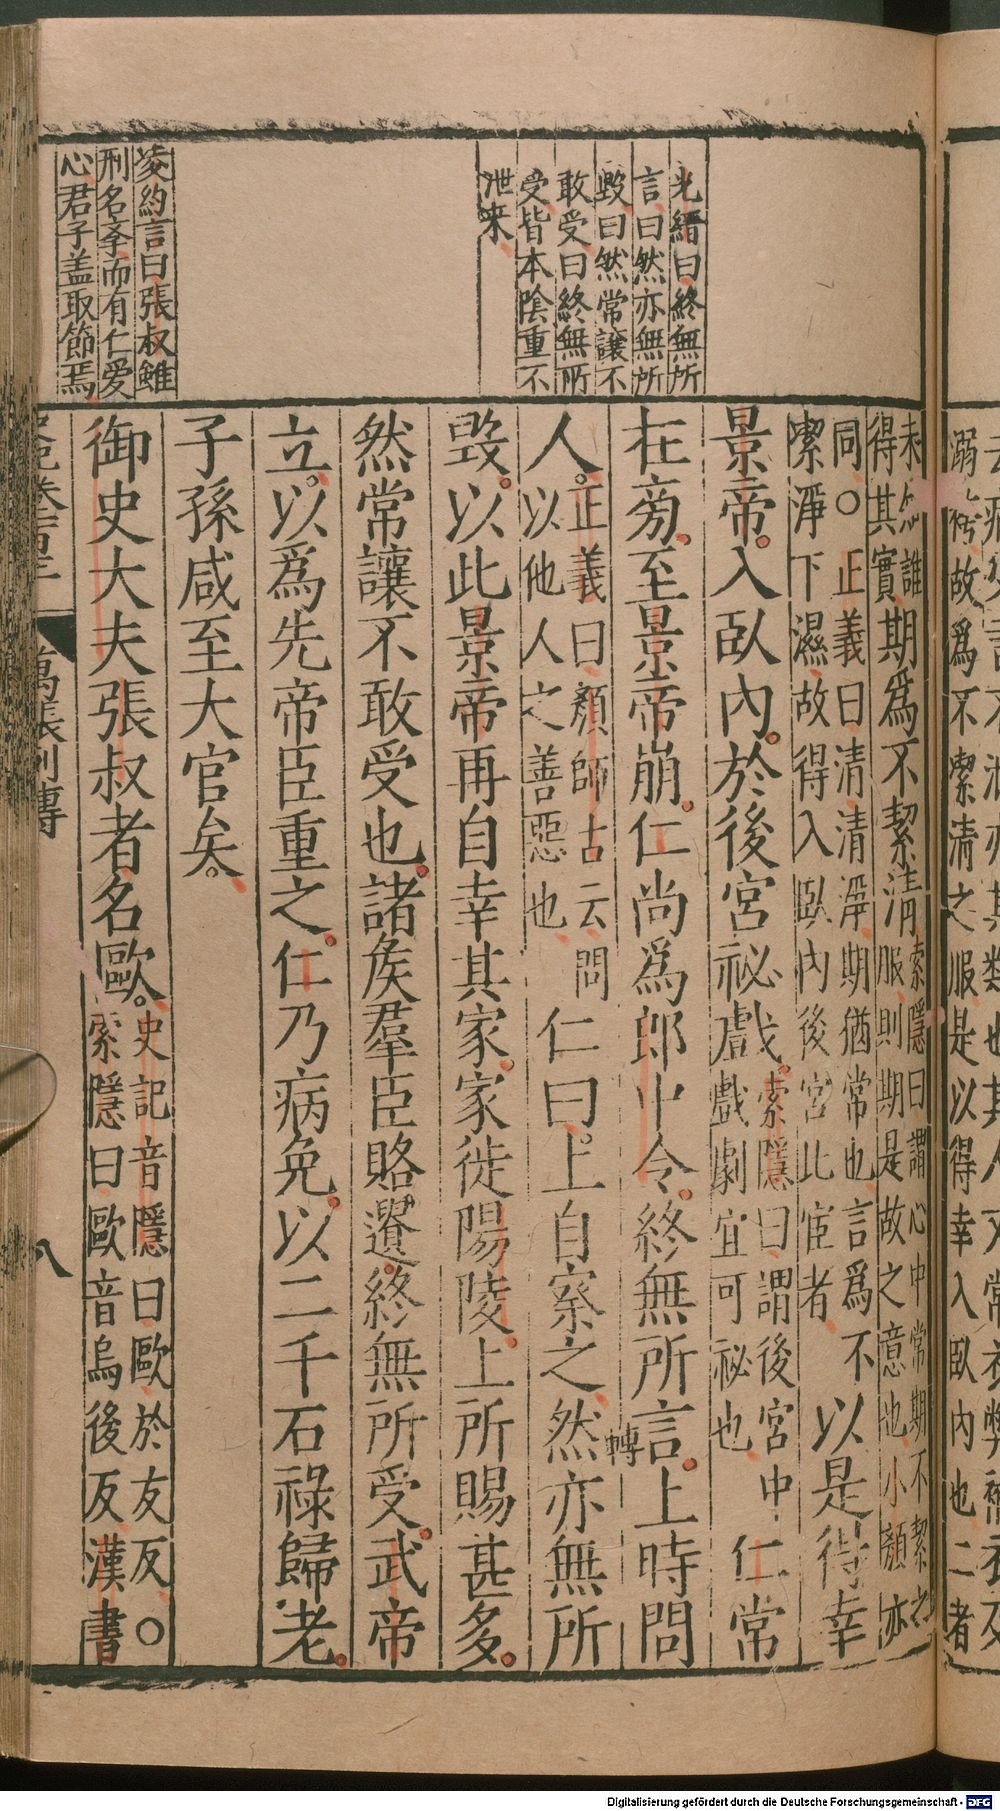 光縉曰終無所
言曰然亦無所
毀曰然常讓不
敢受曰終無所
受皆本陰重不
泄來
凌約言曰張叔雖
刑名李而有仁愛
心君子盖取節焉
溺袴故爲不潔清之服是以得幸入臥内也二者
得其實期爲不潔清索隱曰謂心中常期不絜之
服則期是故之意也小顔亦
同〇正義曰清清淨期猶常也言爲不
潔淨下濕故得入臥内後宮此宦者以是得幸
景帝入臥内於後宮祕戲索隱曰謂後宮中
戲劇宜可祕也仁常
在旁至景帝崩仁尚爲郎中令終無所言上時問
轉
人正義曰顔師古云問
以他人之善惡也仁曰上自察之然亦無所
毀以此景帝再自幸其家家徙陽陵上所賜甚多
然常讓不敢受也諸侯羣臣賂遺終無所受武帝
立以爲先帝臣重之仁乃病免以二千石祿歸老
子孫咸至大官矣
御史大夫張叔者名歐史記音隱曰歐於友反〇
索隱曰歐音烏後反漢書
萬張列傳
八
Digitalisierung gefördert durch die Deutsche Forschungsgemeinschaft - DFG